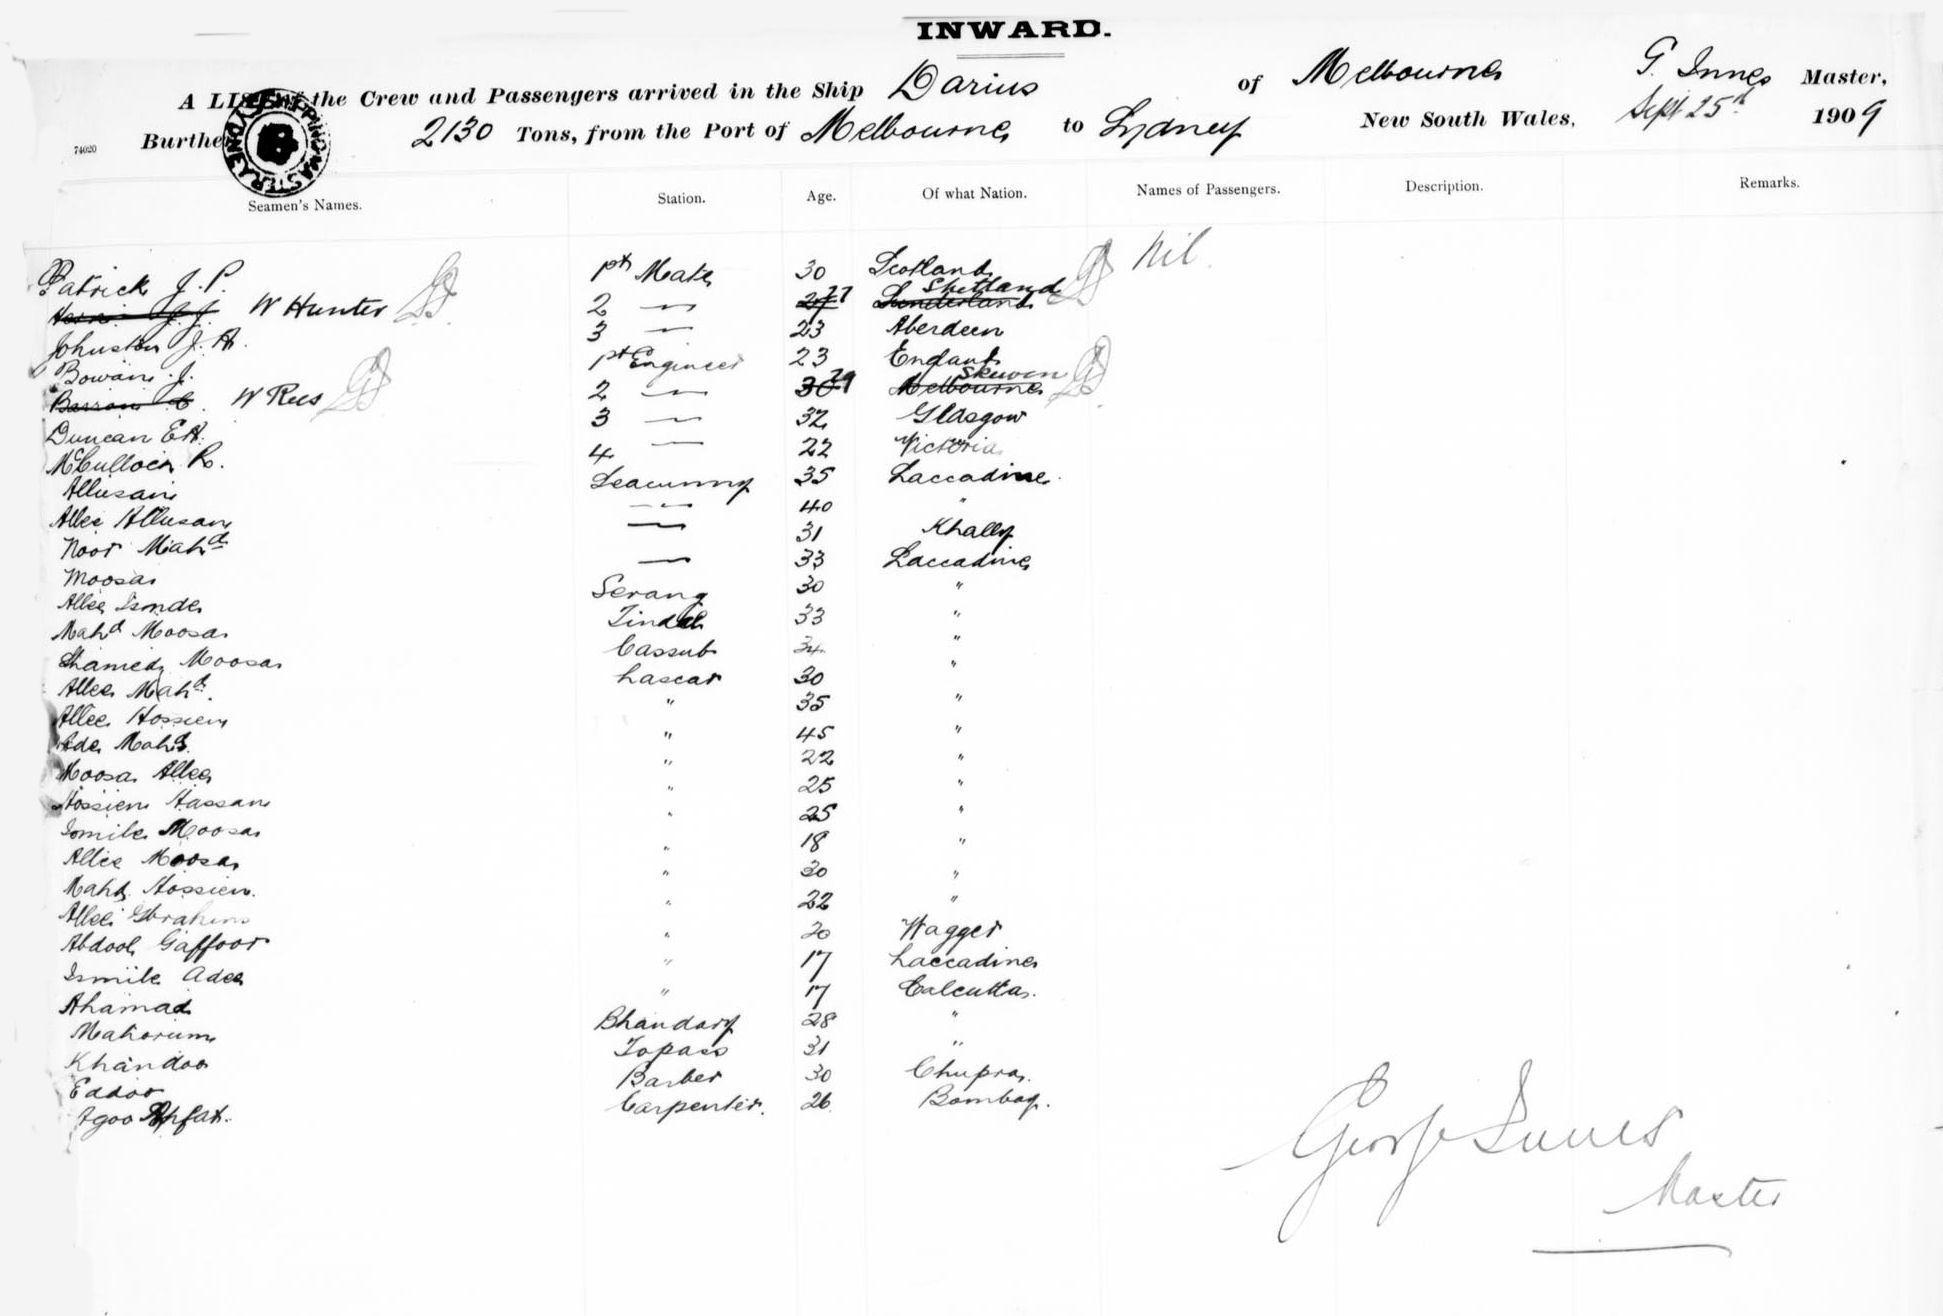 INWARD.
A LIST of the Crew and Passengers arrived in the Ship Darius of Melbourne G. Innes Master,
Burthen 2130 Tons, from the Port of Melbourne to Sydney New South Wales, Sept 25th 1909
74020
Seamen's Names. Station. Age. Of what Nation. Names of Passengers. Description. Remarks.
Patrick J. P. 1st Mate 30 Scotland Nil
W Hunter 2 — 27 Sunderland Shetland
Johnston J. H. 3 — 23 Aberdeen
Bowan J. 1st Engineer 23 England
Barron C. W Rees 2 — 30 29 Melbourne Skewen
Duncan E H. 3 — 32 Glasgow
McCulloch R. 4 — 22 Victoria
Allusan Seacunny 35 Laccadine
Allee Allusan — 40 "
Noor Mahd — 31 Khally
Moosa — 33 Laccadine
Allee Serang 30 "
Mahd Moosa Tindal 33 "
Hamed Moosa Cassub 34 "
Allee Mahd. Lascar 30 "
Allee Hossien " 35 "
Ade Mahd. " 45 "
Moosa Allee " 22 "
Hossien Hassan " 25 "
Ismile Moosa " 25 "
Allee Moosa " 18 "
Mahd. Hossien. " 30 "
Allee Ebrahim " 22 "
Abdool Gaffoor " 20 Wagger
Ismile Adee " 17 Laccadine
Ahamad " 17 Calcutta.
Mahorum Bhandary 28 "
Khandoo Topass 31 "
Eddoo Barber 30 Chupra.
Agoo Carpenter. 26 Bombay.
George Innes
Master